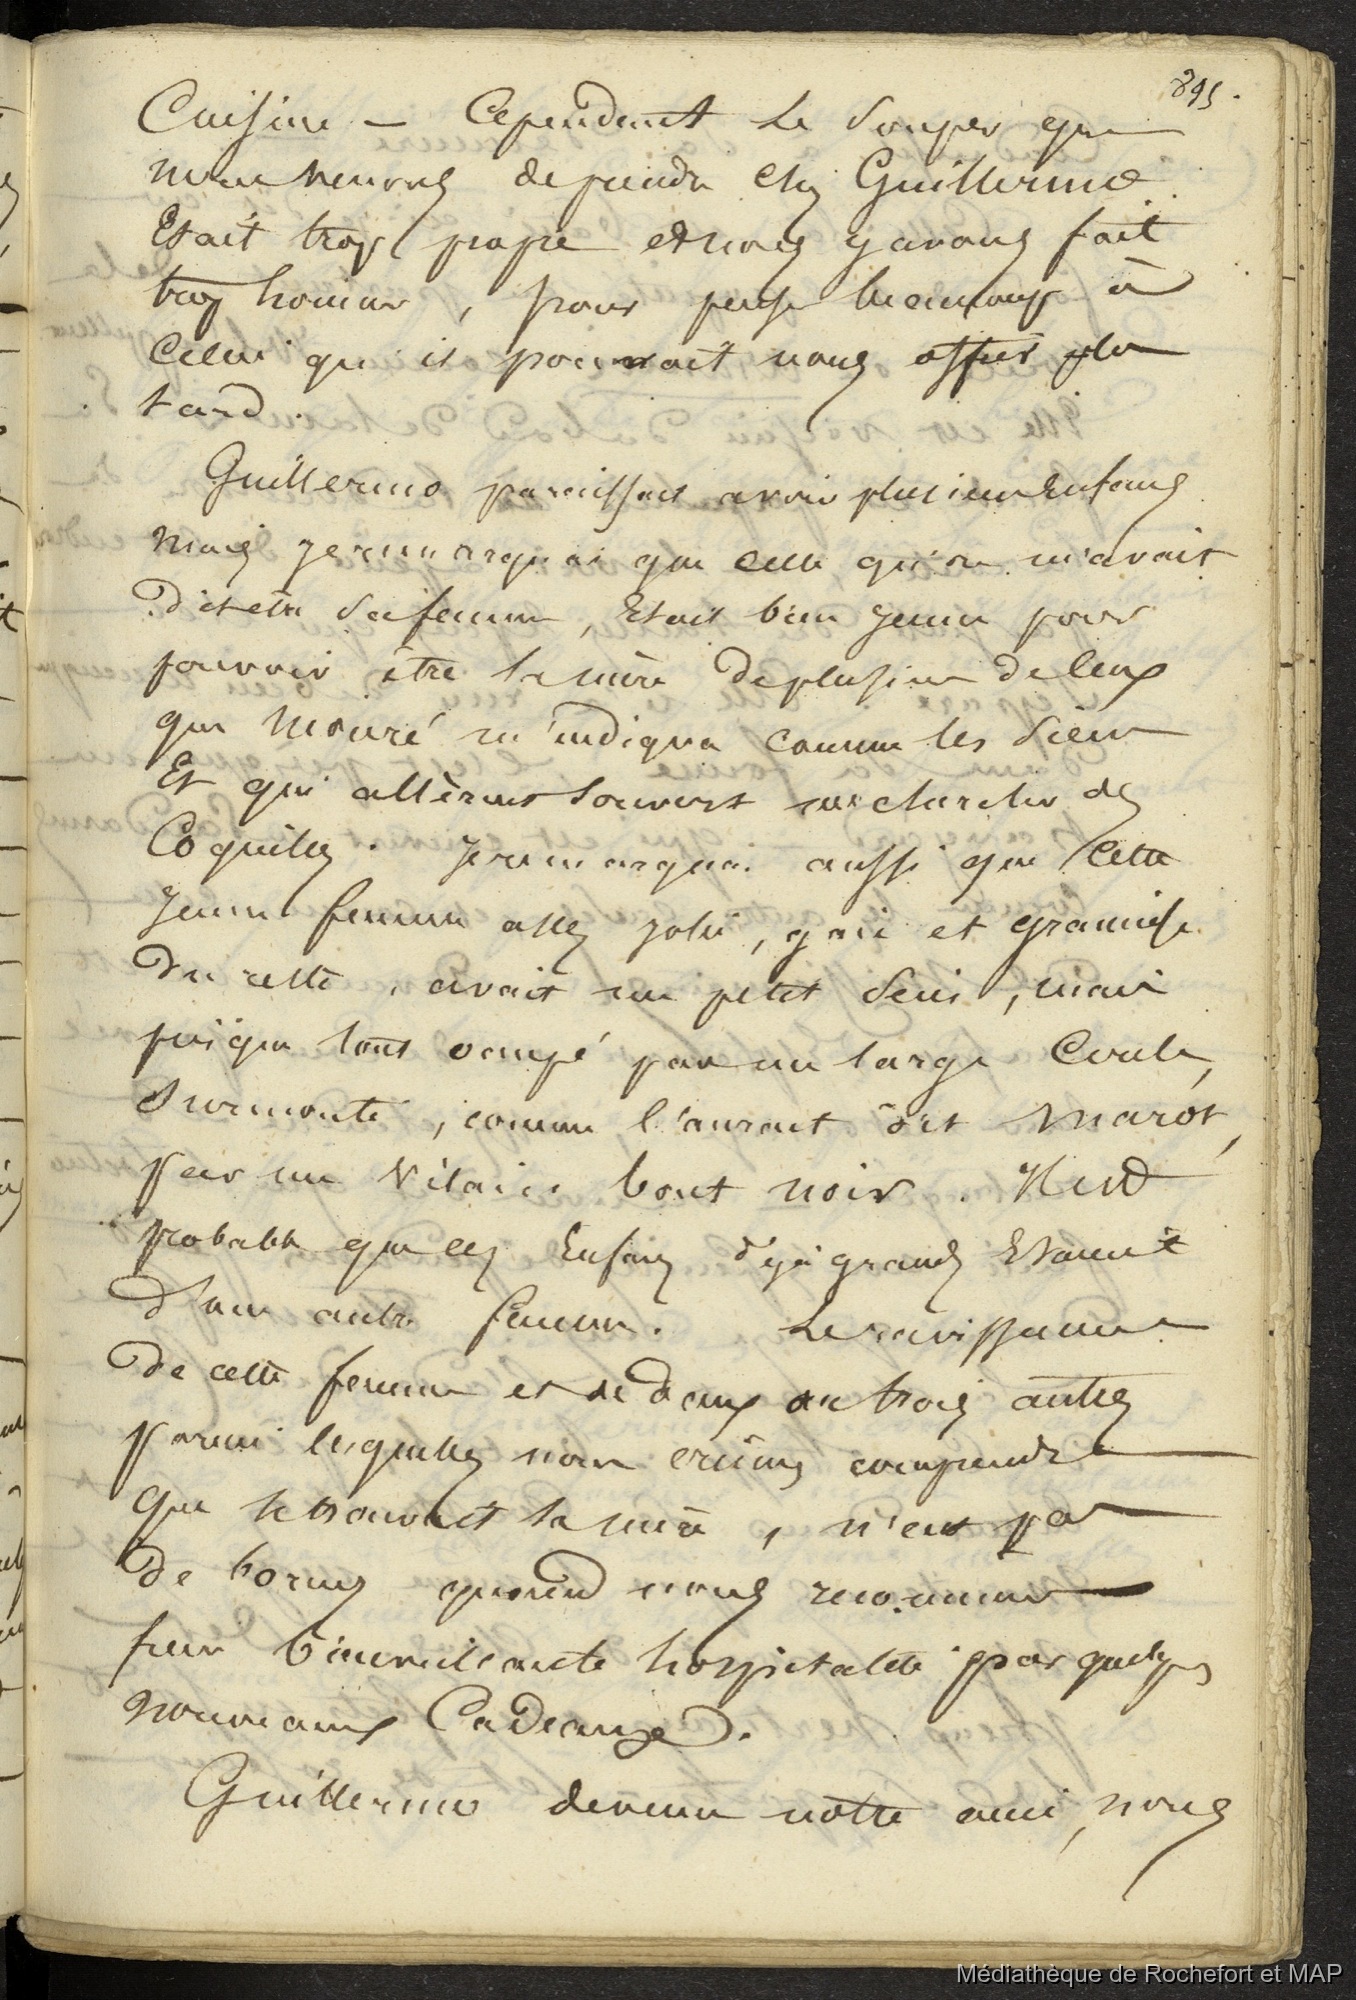 895.
Cuisine — Cependant le souper que
nous venons de prendre chez Guillermo
Etait trop propre et nous y avons fait
trop honneur, pour penser beaucoup à
Celui qu'il pourrait nous offrir plus
tard.
Guillermo paraissait avoir plusieurs Enfans
mais je remarquai que celle qu'on m'avait
dit etre sa femme, Etait bien jeune pour
pouvoir être la mère de plusieurs de ceux
que Mouré m'indiqua comme les siens
Et qui allèrent souvent me chercher des
Coquilles. je remarquai aussi que cette
jeune femme assez jolie, gaie et gracieuse
du reste, avait un petit sein, mais
presque tout occupé par un large Cercle,
surmonté, comme l'aurait dit Marot,
par un vilain bout noir. Il est
probable que ces Enfans déjà grands Etaient
d'une autre femme. Le ravissement
de cette femme et de deux ou trois autres
parmi lesquelles nous crûmes comprendre
que se trouvait la mère, n'eut pas
de bornes quand nous reconnumes
leur bienveillante hospitalité par quelques
nouveaux Cadeaux.
Guillermo devenu notre ami, nous
Médiathèque de Rochefort et MAP